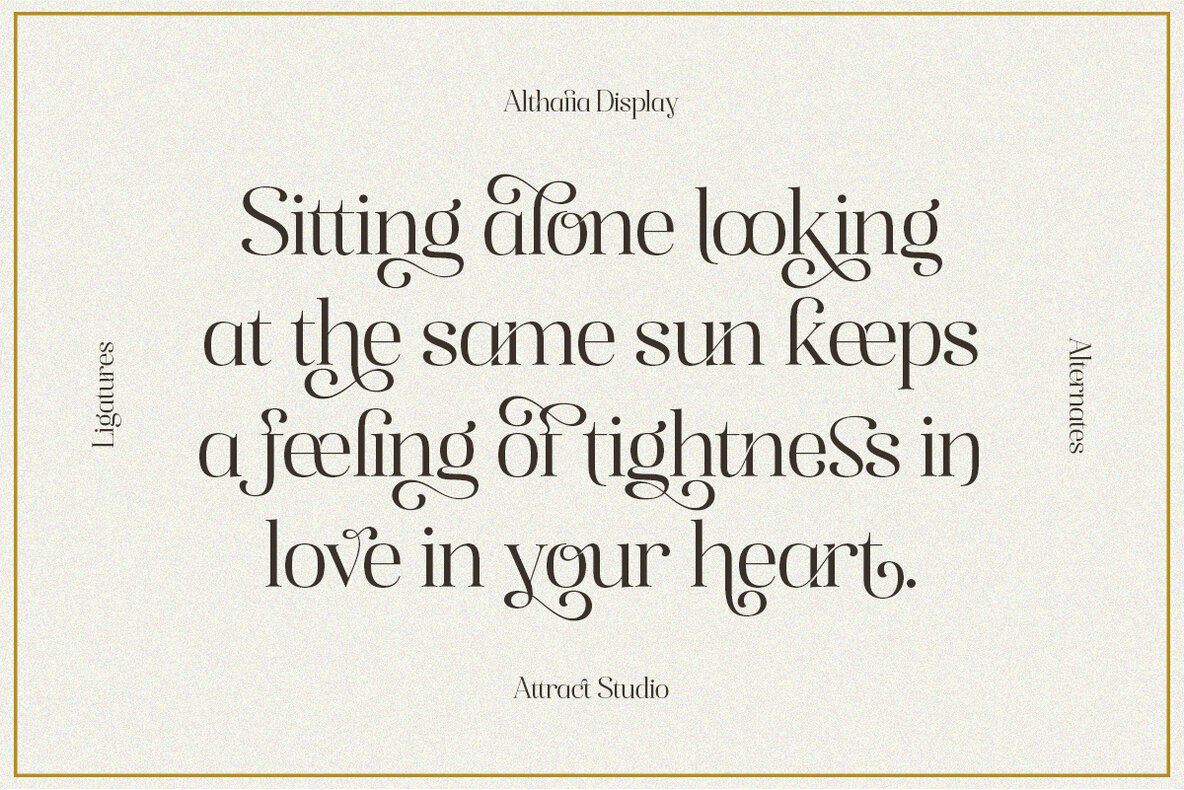 Althafia Display
Sitting alone looking
at the same sun keeps
a feeling of tightness in
love in your heart.
Ligatures
Alternates
Attract Studio